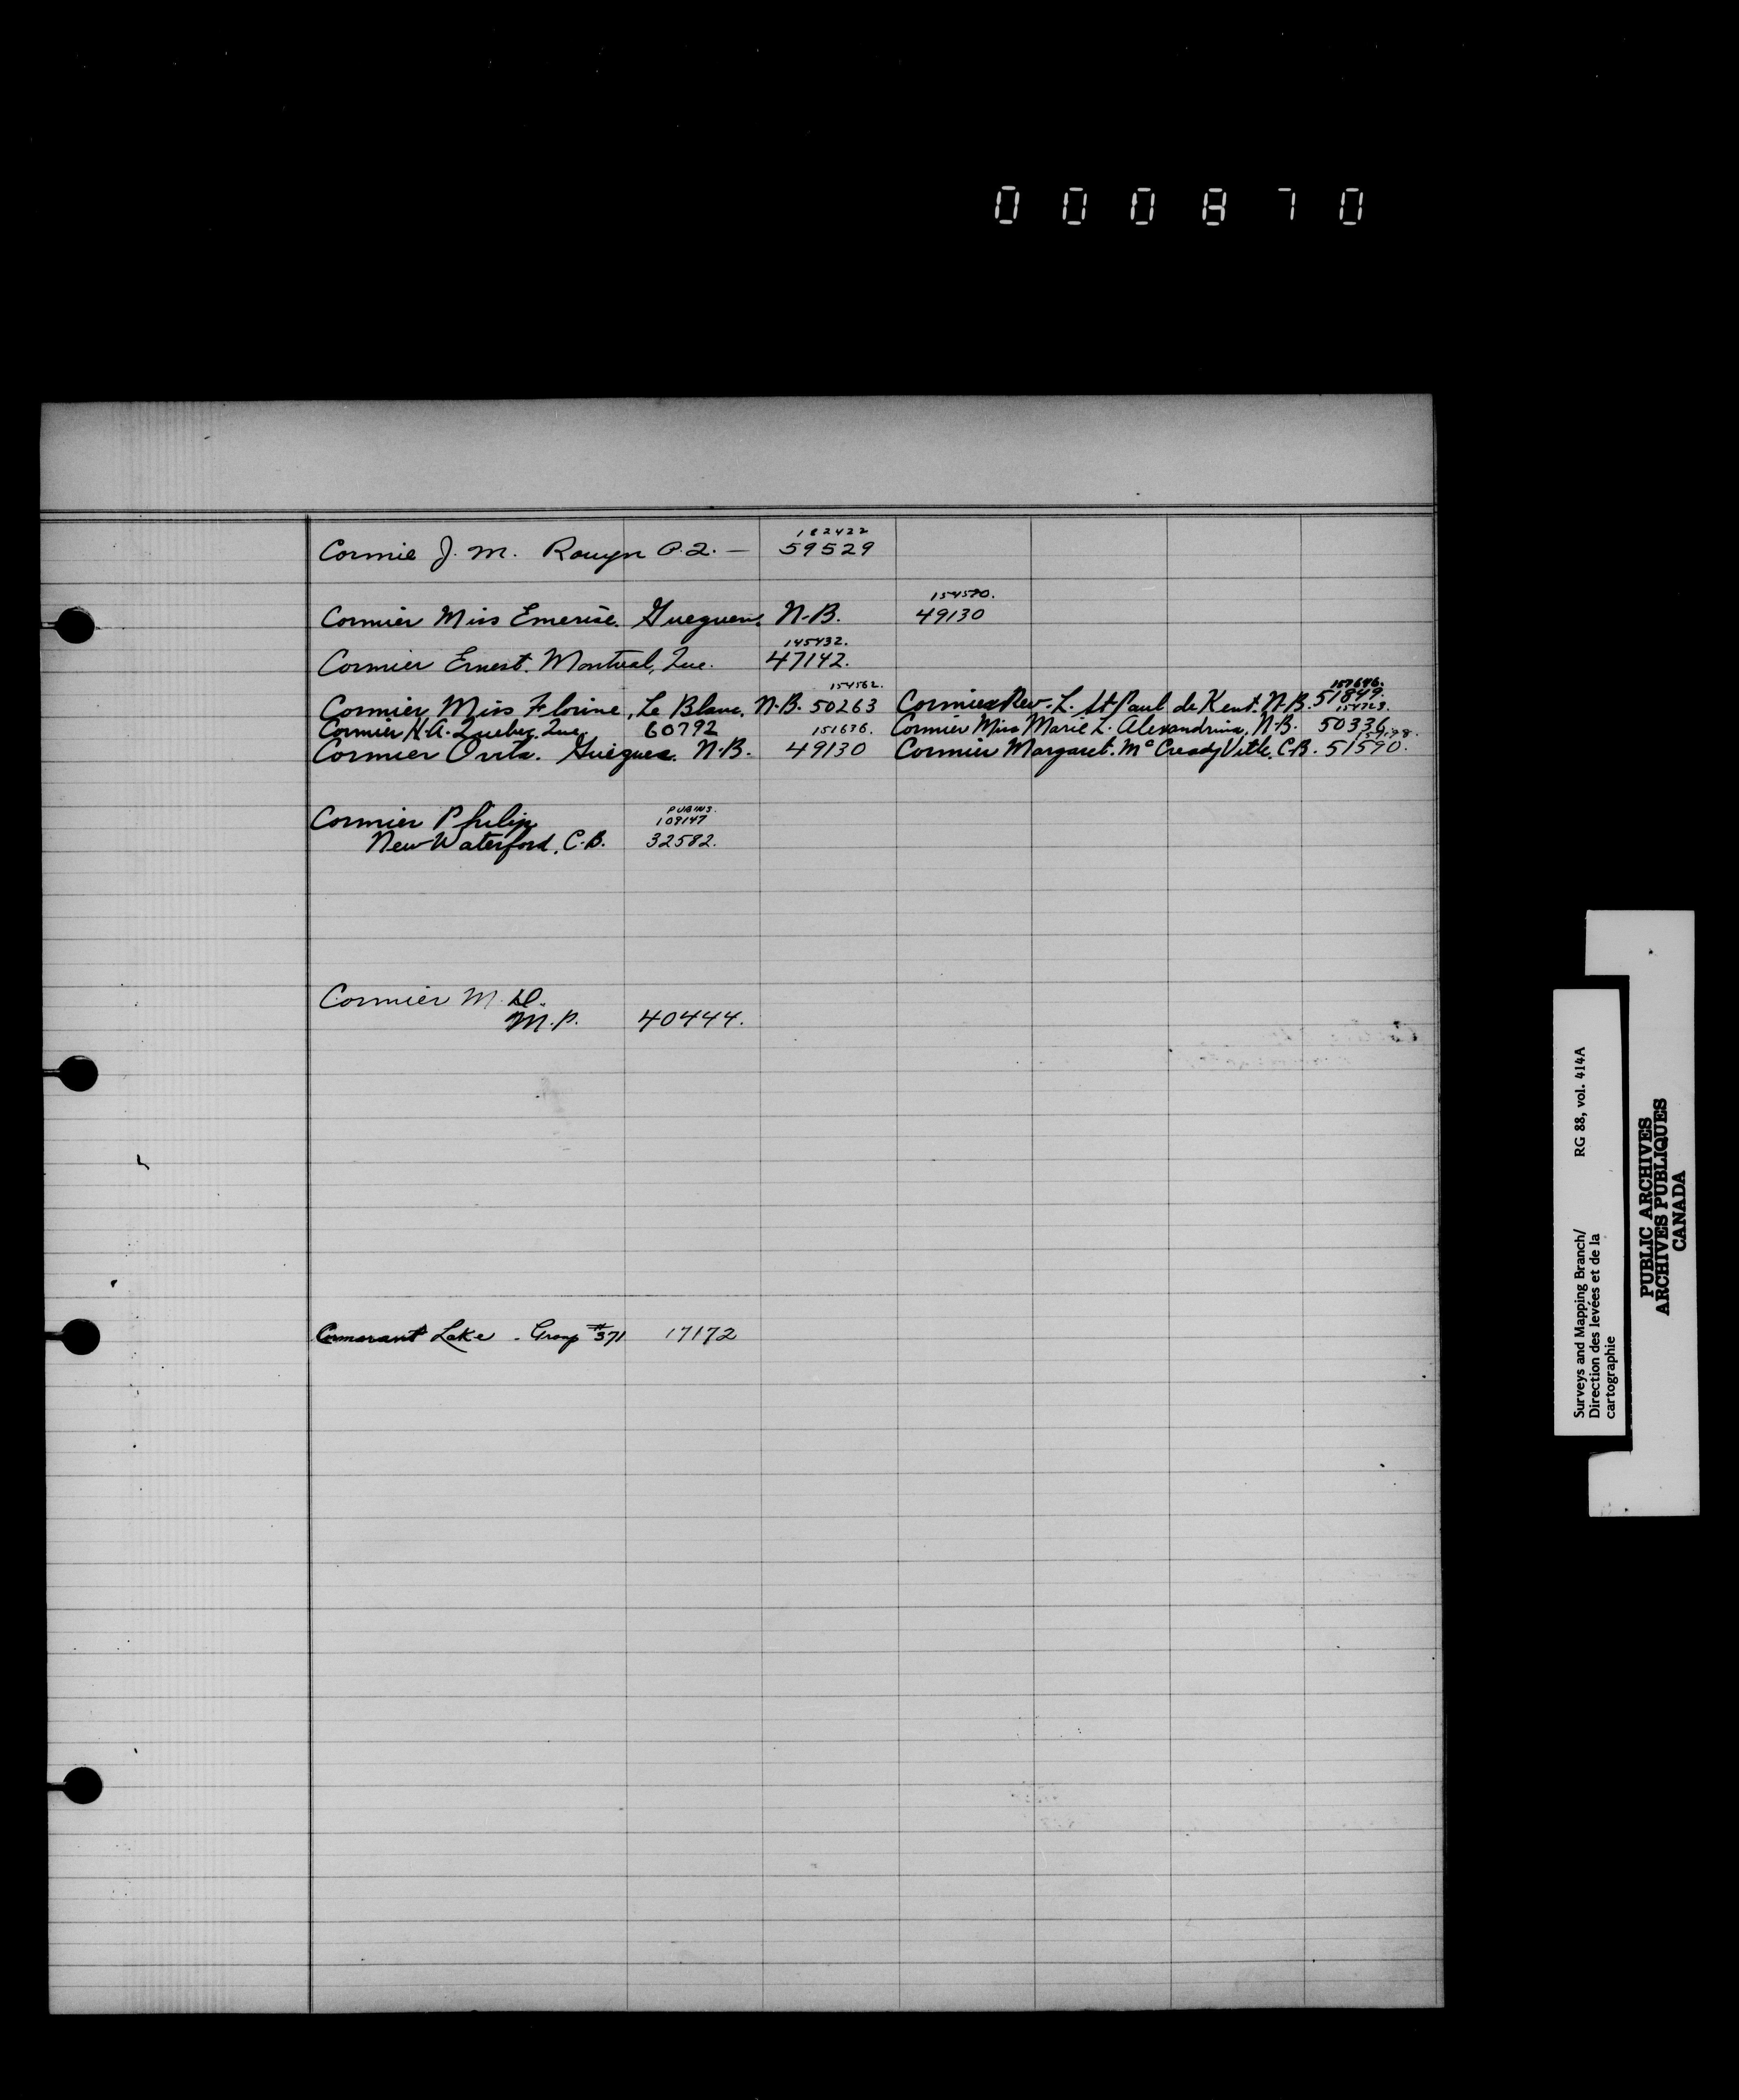 000870
182422
Cormie J. M. Rouyn P.Q. — 59529
154570.
Cormier Miss Emerise. Gueguen. N-B. 49130
145432.
Cormier Ernest. Montreal, Que. 47142.
154562. 157646.
Cormier, Miss Florine, Le Blanc, N.B. 50263 Cormier Rev. L. St-Paul de Kent. N-B. 51849.
151636. 154723.
Cormier H.A. Quebec, Que. 60792 Cormier Miss Marie L. Alexandrina, N-B. 50336
Cormier Ovita. Gueguen. N-B. 49130 Cormier Margaret. McCready Ville. C.B. 51590.
PUBINS.
Cormier Philip 109147
New Waterford, C.B. 32582.
Cormier M. D.
M.P. 40444.
Cormorant Lake - Group #371 17172
Surveys and Mapping Branch/ RG 88, vol. 414A
Direction des levées et de la
cartographie
PUBLIC ARCHIVES
ARCHIVES PUBLIQUES
CANADA